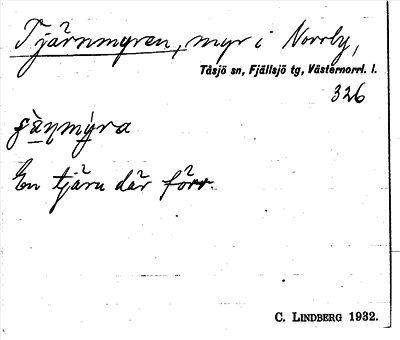 Tjärnmyren, myr i Norrby,
Tåsjö sn, Fjällsjö tg, Västernorrl. l.
326
En tjärn där förr.
C. LINDBERG 1932.